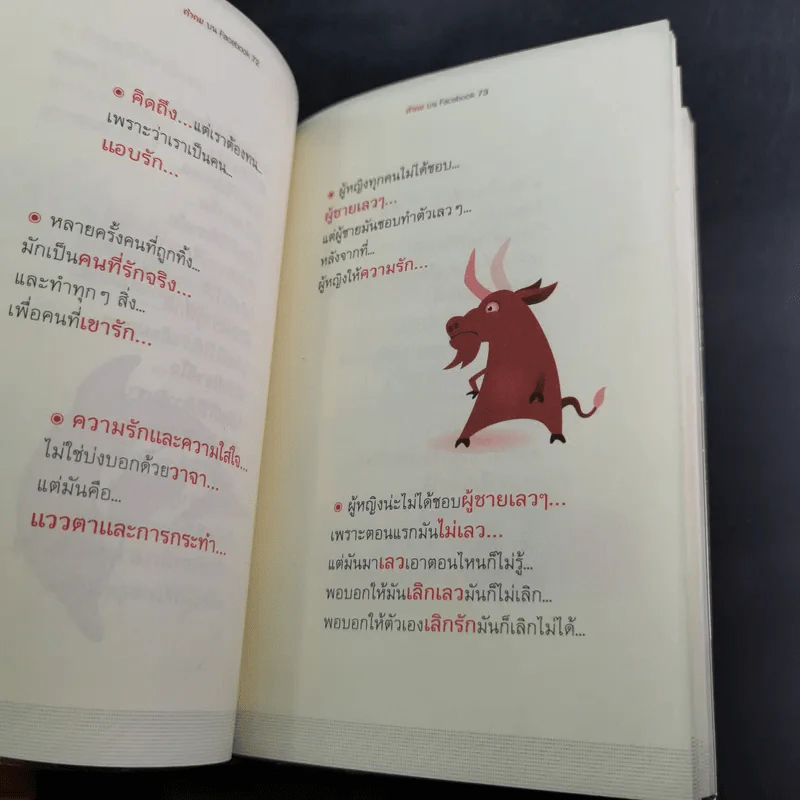 คำคม บน Facebook 72
คิดถึง...แต่เราต้องทน...
เพราะว่าเราเป็นคน...
แอบรัก...
หลายครั้งคนที่ถูกทิ้ง...
มักเป็นคนที่รักจริง...
และทำทุกๆ สิ่ง...
เพื่อคนที่เขารัก...
ความรักและความใส่ใจ...
ไม่ใช่บ่งบอกด้วยวาจา...
แต่มันคือ...
แววตาและการกระทำ...
คำคม บน Facebook 73
ผู้หญิงทุกคนไม่ได้ชอบ...
ผู้ชายเลวๆ...
แต่ผู้ชายมันชอบทำตัวเลวๆ...
หลังจากที่...
ผู้หญิงให้ความรัก...
ผู้หญิงน่ะไม่ได้ชอบผู้ชายเลวๆ...
เพราะตอนแรกมันไม่เลว...
แต่มันมาเลวเอาตอนไหนก็ไม่รู้...
พอบอกให้มันเลิกเลวมันก็ไม่เลิก...
พอบอกให้ตัวเองเลิกรักมันก็เลิกไม่ได้...